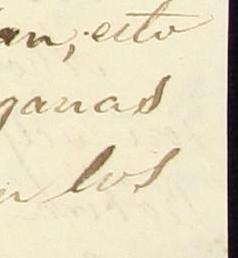 an, esto
ganas
n los